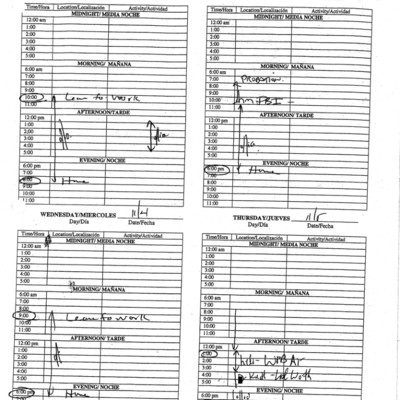 Time/Hora Location/Localización Activity/Actividad
MIDNIGHT/ MEDIA NOCHE
12:00 am
MORNING/ MAÑANA
6:00 am
7:00
8:00
9:00
10:00 to work
11:00
AFTERNOON/TARDE
12:00 pm
1:00
2:00
3:00
4:00
5:00
EVENING/ NOCHE
6:00 pm
7:00
8:00 Home
9:00
10:00
11:00
Time/Hora Location/Localización Activity/Actividad
MIDNIGHT/ MEDIA NOCHE
12:00 am
MORNING/ MAÑANA
6:00 am
7:00 PROBATION
8:00
9:00
10:00
11:00
AFTERNOON/ TARDE
12:00 pm
1:00
2:00
3:00
4:00
5:00
EVENING/ NOCHE
6:00 pm Home
7:00
8:00
9:00
10:00
11:00
WEDNESDAY/MIERCOLES 11/4
Day/Día Date/Fecha
Time/Hora Location/Localización Activity/Actividad
MIDNIGHT/ MEDIA NOCHE
12:00 am
MORNING/ MAÑANA
6:00 am
7:00
8:00
9:00 to work
10:00
11:00
AFTERNOON/ TARDE
12:00 pm
1:00
2:00
3:00
4:00
5:00
EVENING/ NOCHE
6:00 pm Home
7:00
THURSDAY/JUEVES 11/5
Day/Día Date/Fecha
Time/Hora Location/Localización Activity/Actividad
MIDNIGHT/ MEDIA NOCHE
12:00 am
MORNING/ MAÑANA
6:00 am
7:00
8:00
9:00
10:00
11:00
AFTERNOON/ TARDE
12:00 pm
1:00
2:00
3:00
4:00
5:00
EVENING/ NOCHE
6:00 pm
7:00